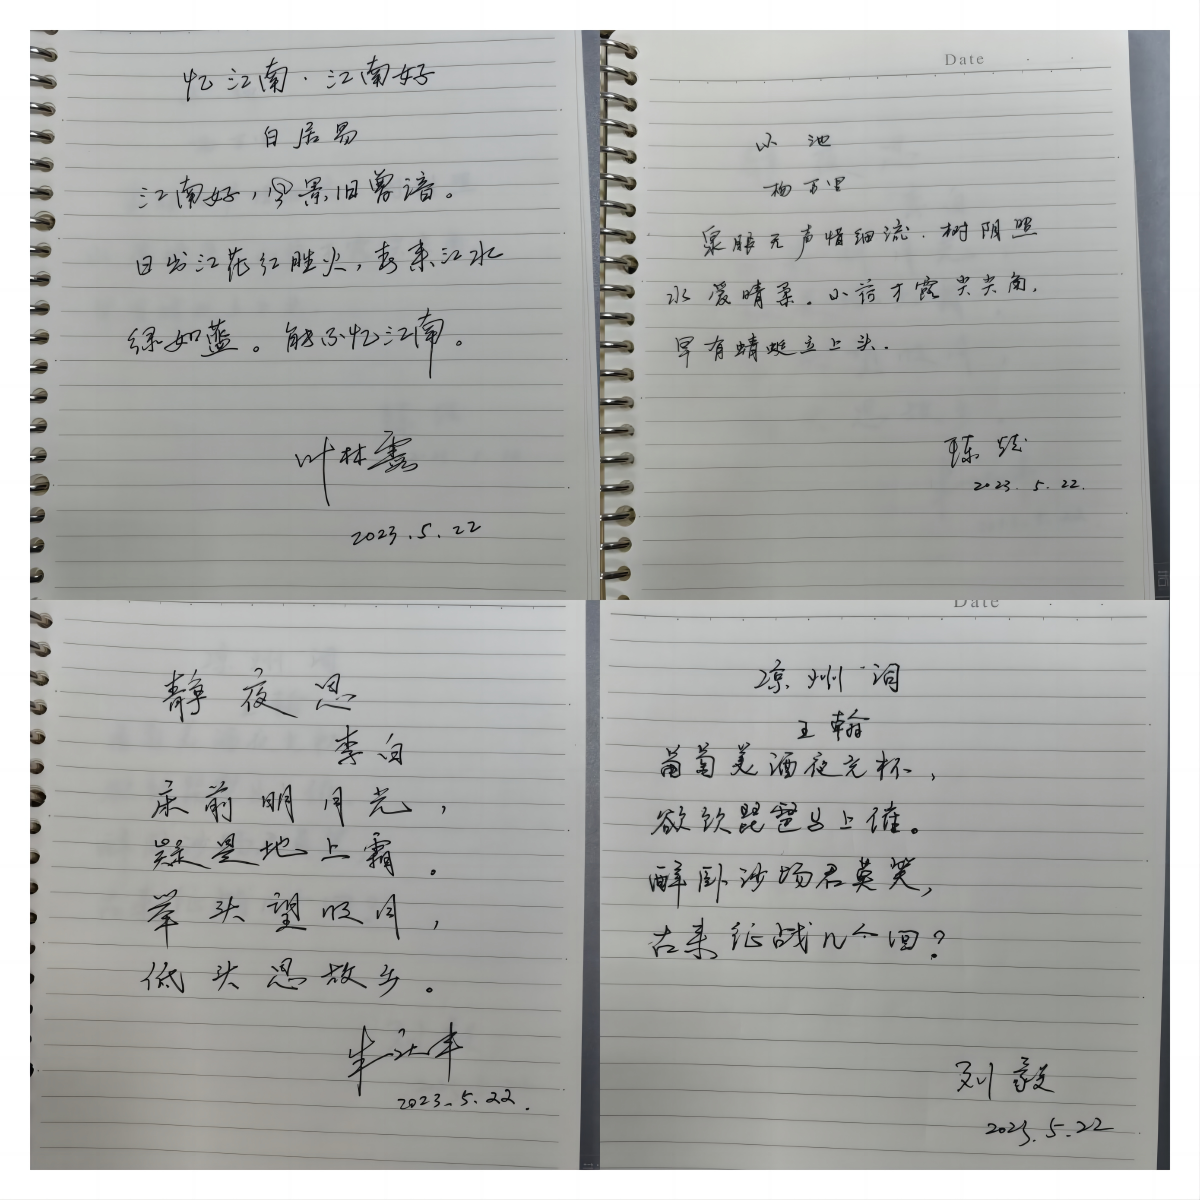 忆江南·江南好
白居易
江南好，风景旧曾谙。
日出江花红胜火，春来江水
绿如蓝。能不忆江南。
叶林
2023.5.22
Date
小池
杨万里
泉眼无声惜细流.树阴照
水爱晴柔.小荷才露尖尖角,
早有蜻蜓立上头.
陈
2023.5.22.
静夜思
李白
床前明月光，
疑是地上霜.
举头望明月，
低头思故乡。
2023.5.22.
Date
凉州词
王翰
葡萄美酒夜光杯，
欲饮琵琶马上催。
醉卧沙场君莫笑，
古来征战几个回？
刘毅
2023.5.22